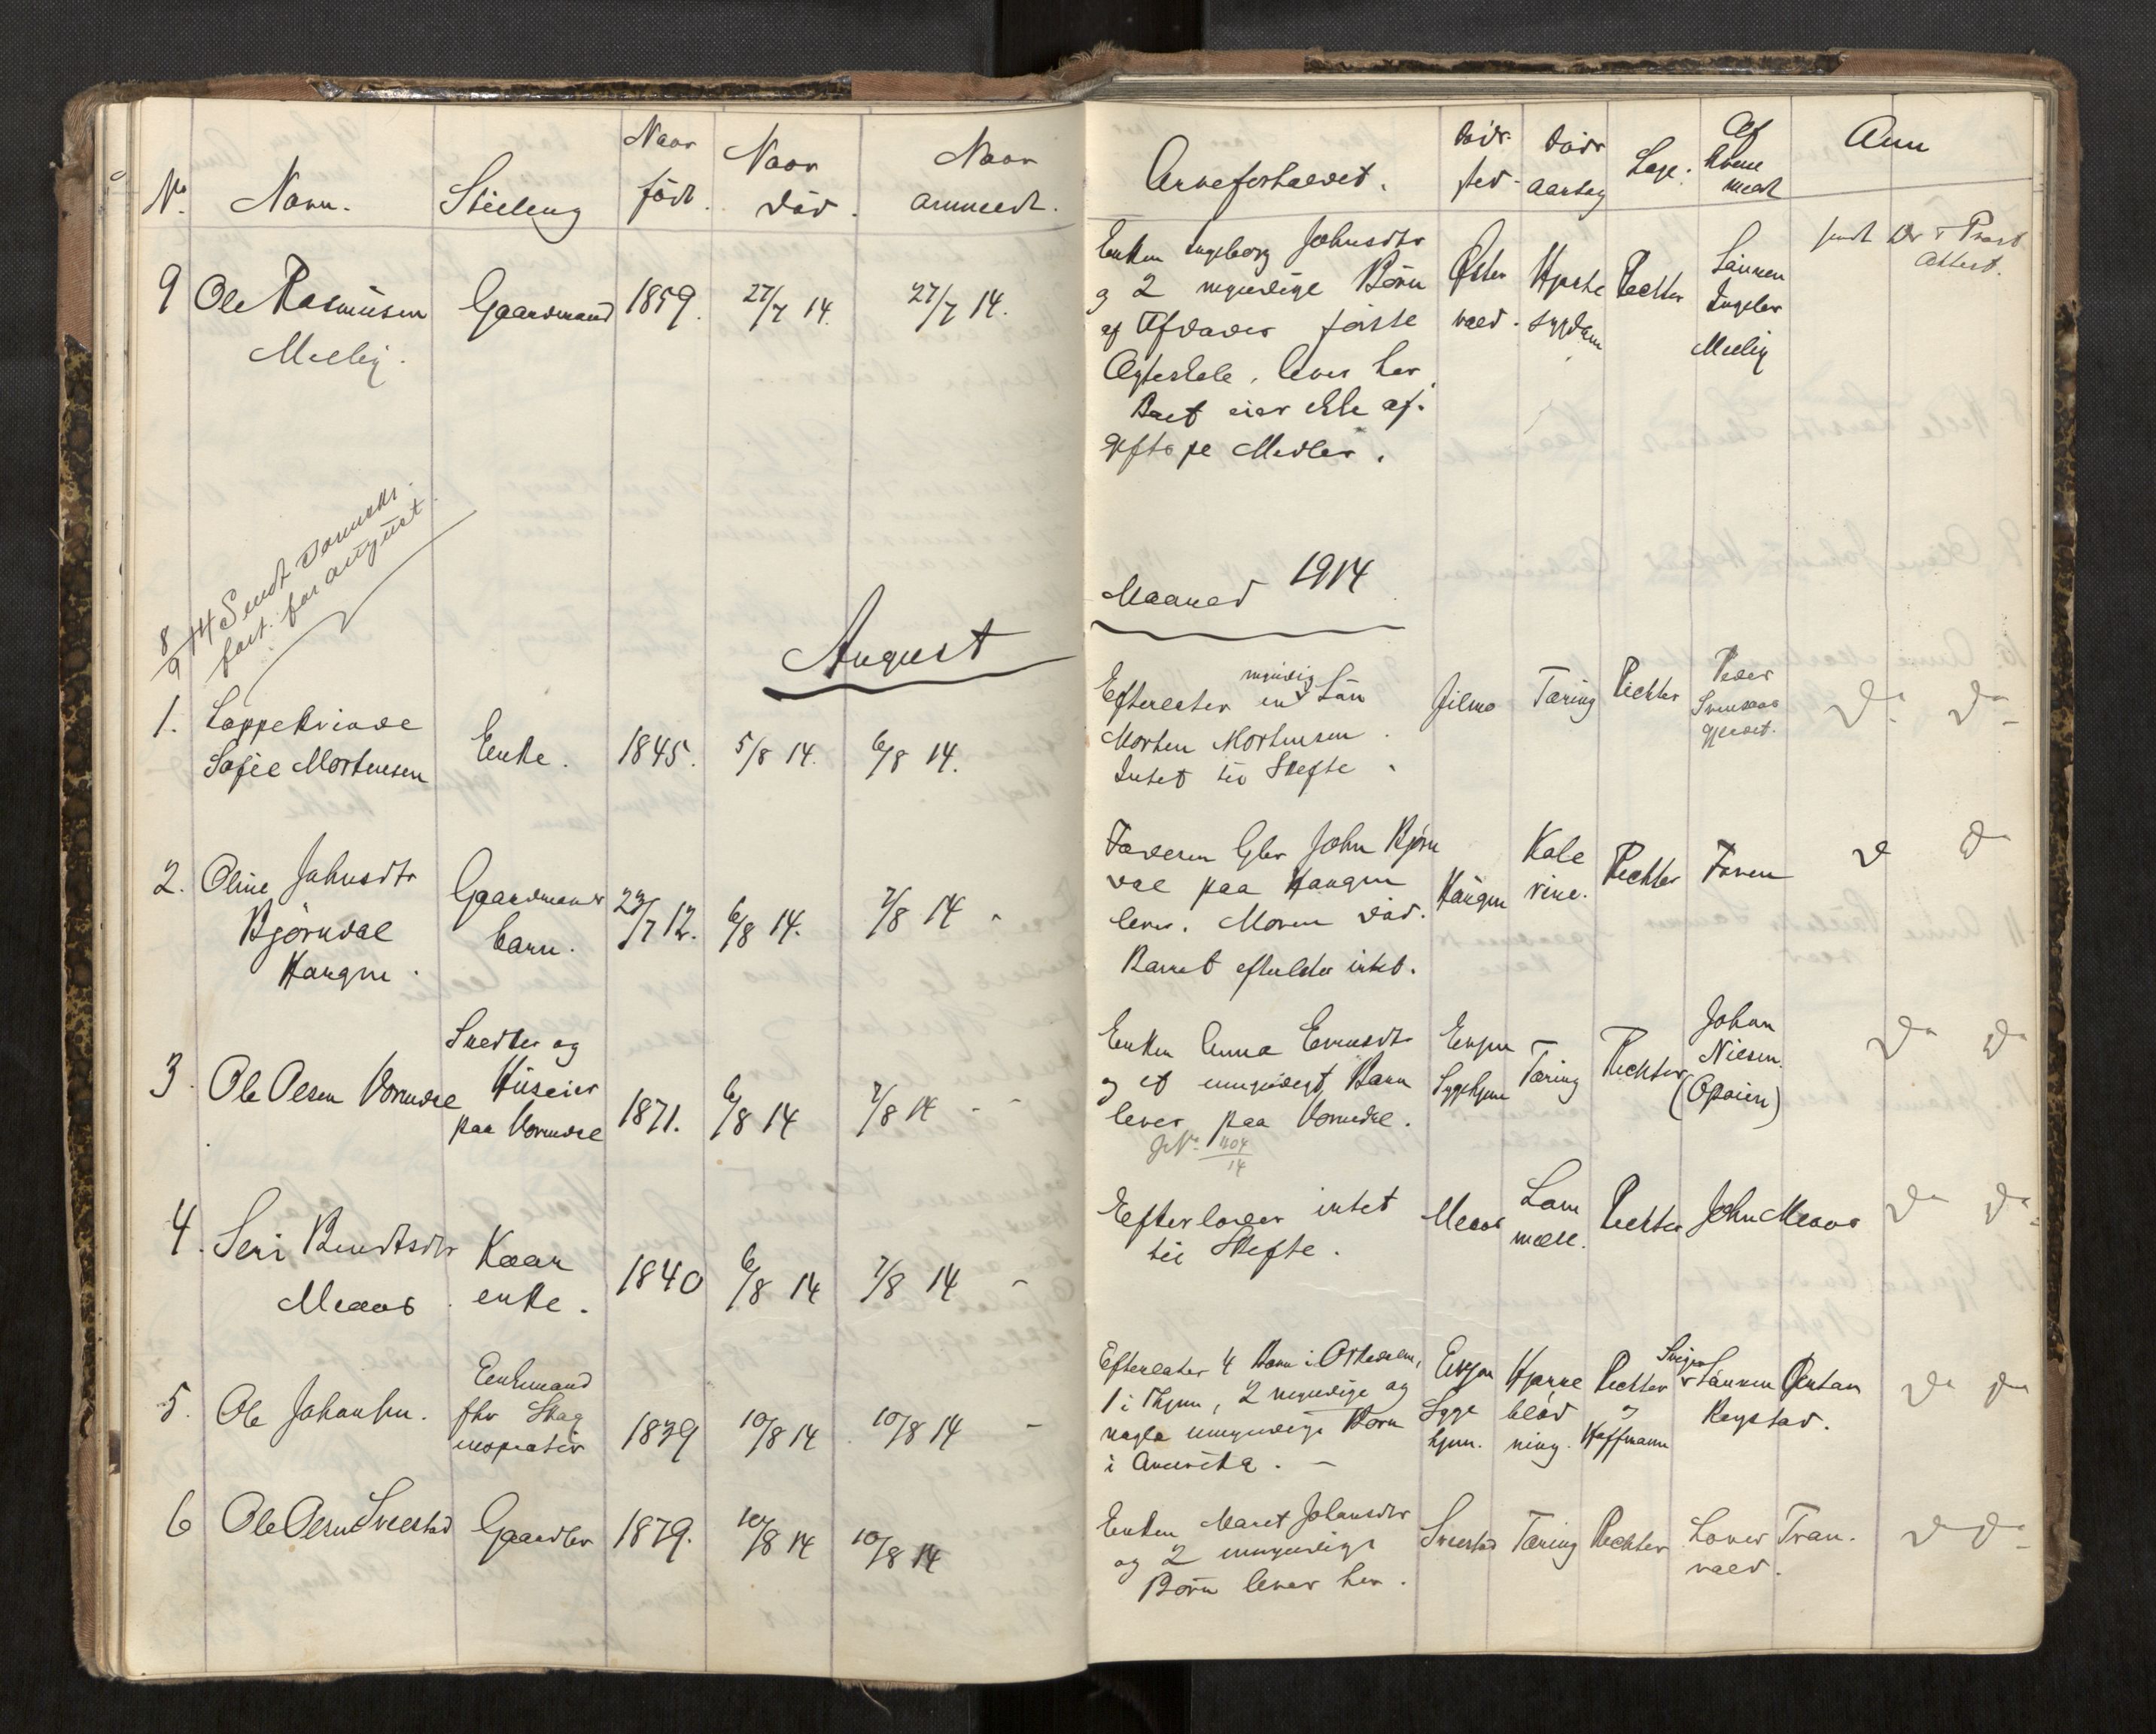 No. Navn. Stilling Naar født. Naar død. Naar anmeldt.
Arveforholdet. Døds sted. Døds aarsag Læge. Af hvem meldt Anm
9 Ole Rasmussen Gaardmand 1859. 27/7 14. 27/7 14.
Melby.
Enken Ingeborg Johnsdtr
og 2 myndige Børn
af Afdødes første
Ægteskab, lever her
Boet eier ikke af-
giftspl Midler.
Hjerte
sygdom
Richter
Sønnen
Melby
sendt Dr's Præst
Attest.
8/9 14 Sendt
fort. for august
August
Maaned 1914
1. Lappekvinde
Sofie Mortensen Enke. 1845. 5/8 14. 6/8 14.
myndig
Efterlater en Søn
Morten Mortensen.
Intet til Skifte.
Tæring Richter
Peder
Do Do
2. Oline Johnsdtr
Bjørndal
Haugen.
Gaardmands
barn.
23/7 12. 6/8 14. 7/8 14
Faderen Gbr John Bjørn
dal paa Haugen
lever. Moren død.
Barnet efterlater intet.
Haugen
Kole
rine.
Richter Faren
D Do
3. Ole Olsen Vormdal
Snedker og
Huseier
paa Vormdal
1871. 6/8 14 7/8 14 - -
Enken Anna
og et umyndigt Barn
lever paa Vormdal.
JNo. 404/14
Sygehjem
Tæring Richter
Johan
Nilsen.
(Opsien)
Do Do
4. Seri Bendtsdtr
Meaas.
Kaar
enke.
1840 6/8 14 7/8 14 -
Efterlader intet
til Skifte.
Meaas
Lam
melse.
Richter John Meaas
Do Do
5. Ole Johansen.
Enkemand
fhv Skog
inspektør
1839 10/8 14 10/8 14 -
Efterlater 4 Barn i Orkedalen,
1 i Thjem, 2 myndige og
nogle umyndige Børn
i Amerika. -
Syge
hjem.
Hjærne
blød
ning.
Richter
og
Hoffmann
Svigersønnen
Rogstad.
Do Do
6 Ole Olsen Sveestad Gaardbr 1879. 10/8 14 10/8 14
Enken Maret Johansdtr
og 2 umyndige
Børn lever her.
Sveestad Tæring Richter
Tran-
vald.
D Do